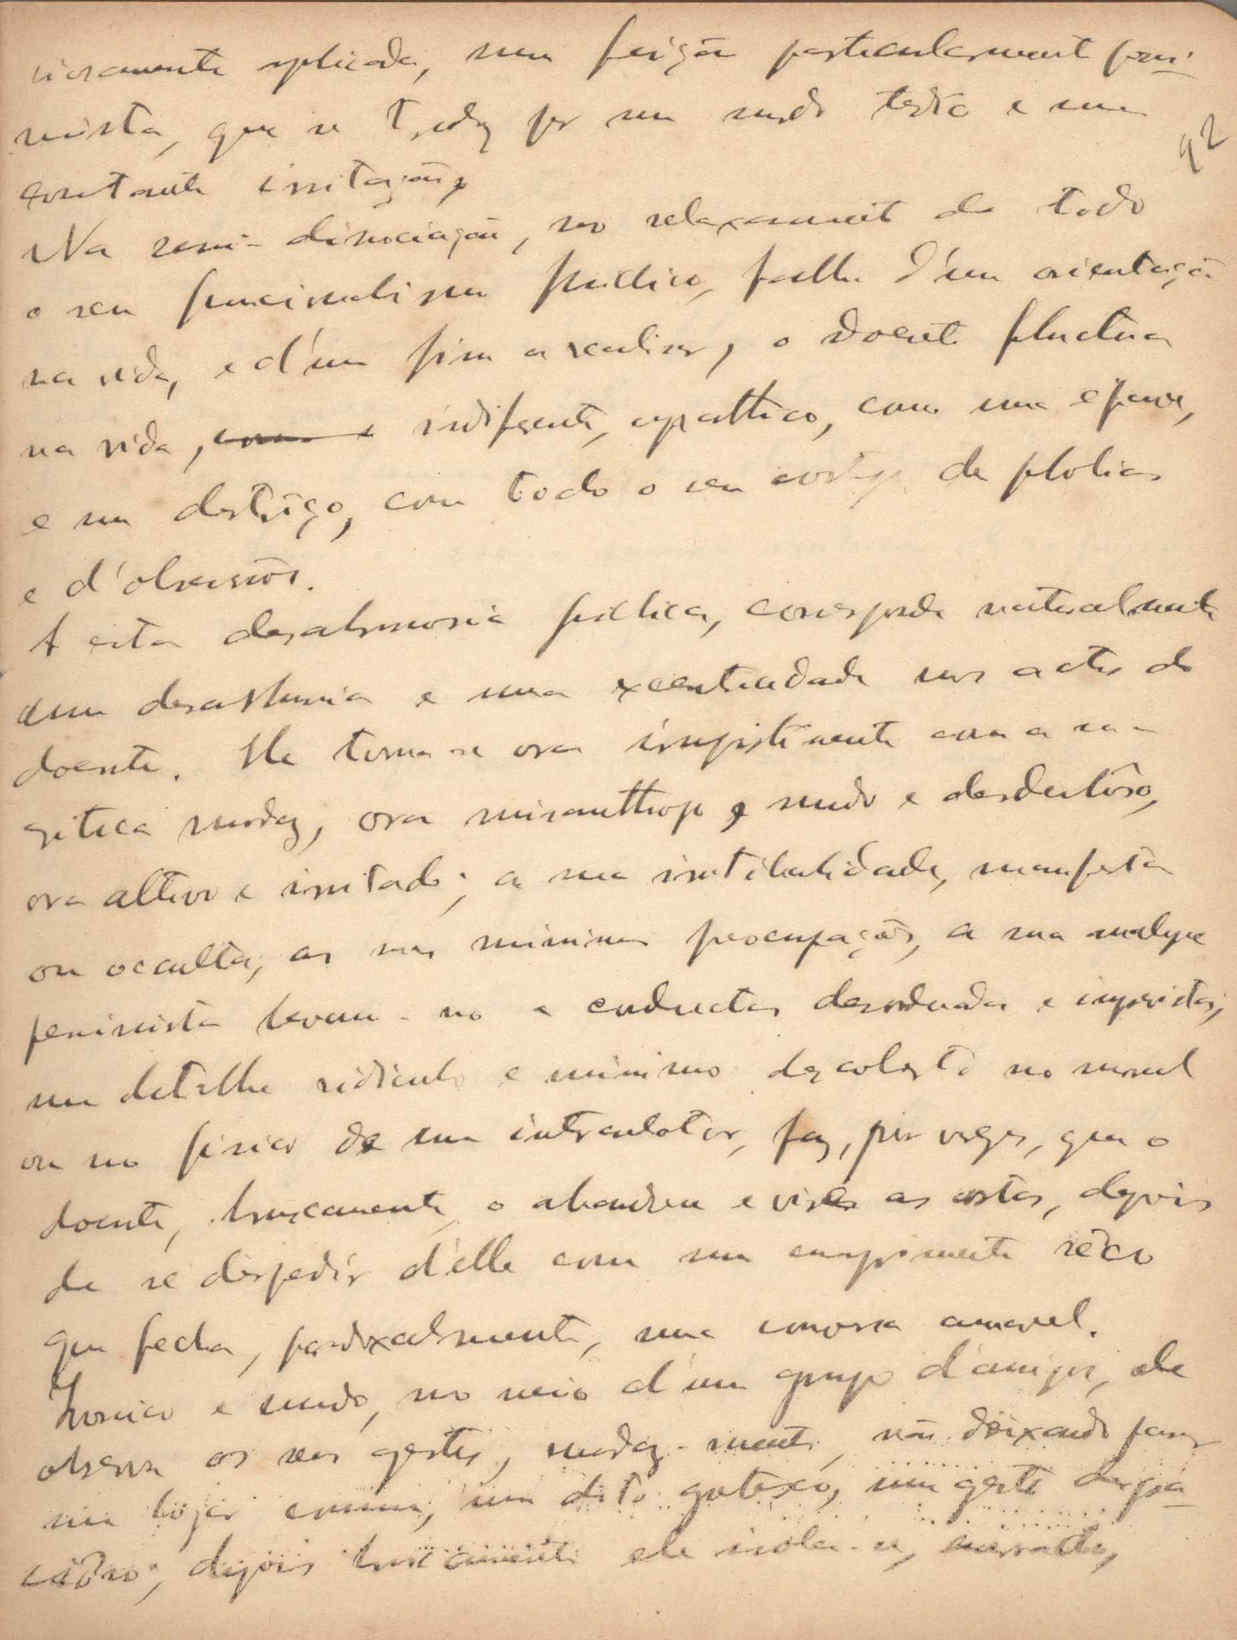 aplicada, uma feição particularmente pessi-
mista, que se traduz por um modo testo e uma
constante irritação,
Na semi-dissociação, no relaxamento de todo
o seu funcionalismo psichico, falha d'uma orientação
na vida, e d'um fim a realisar, o doente fluctua
na vida, indiferente, apathico, como uma
e um destroço, com todo o seu cortejo de phobias
e d'obsessões.
A esta desarmonia psichica, corresponde naturalmente
uma desarmonia e uma excentricidade nos actos do
doente. Ele torna-se ora com a sua
critica mordaz, ora misanthropo, mudo e desdenhoso,
ora altivo e irritado; a sua irritabilidade, manifesta
ou occulta, as suas minimas preocupações, a sua analyse
pessimista levam-no a conductas desordenadas e imprevistas;
um detalhe ridiculo e minimo descoberto no moral
ou no fisico de um interlocutor, faz, por vezes, que o
doente, bruscamente, o abandone e vire as costas, depois
de se despedir d'elle com um cumprimento sêco
que fecha, paradoxalmente, uma conversa amavel.
Ironico e mudo, no meio d'um grupo d'amigos, ele
observa os seus gestos, mordaz-mente, não deixando passar
um logar commum, um dito, um gesto desgra-
cioso; depois bruscamente ele isola-se,
92